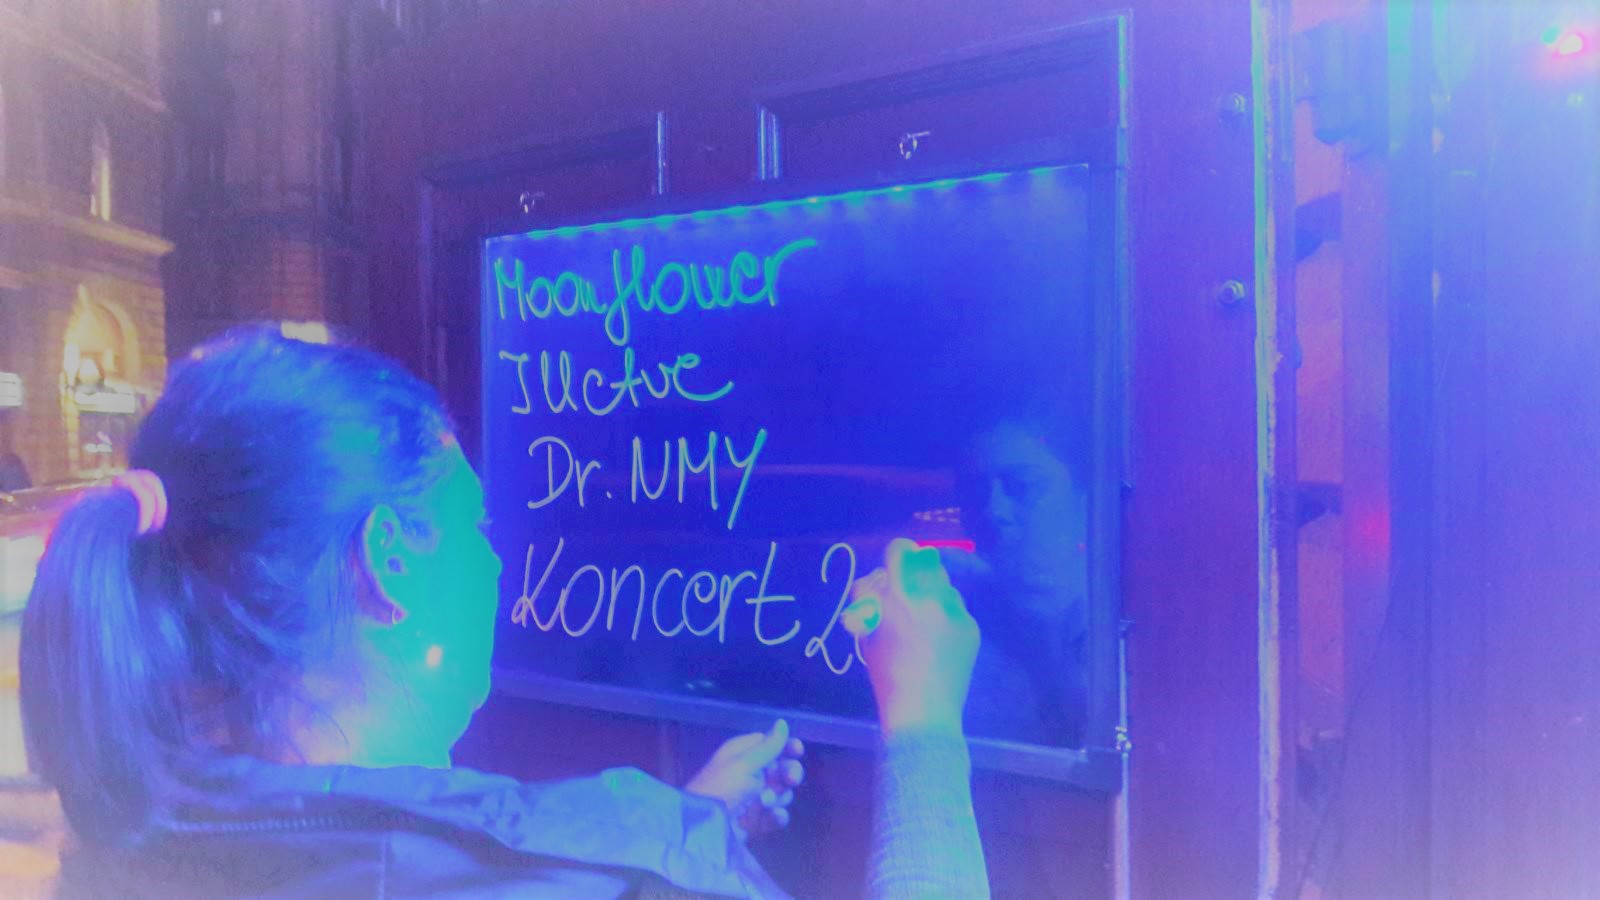 Moonflower
IllCtve
Dr. NMY
Koncert 2